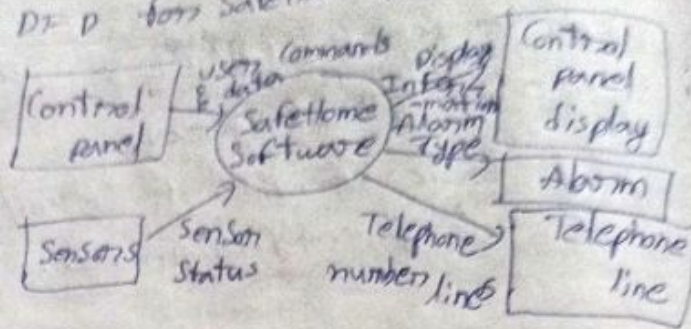 DFD for Safe
Control
panel
user commands
& data
SafeHome
Software
Display
Infor
-mation
Alarm
Type
Control
panel
display
Alarm
Sensors
Sensor
Status
Telephone
number lines
Telephone
line